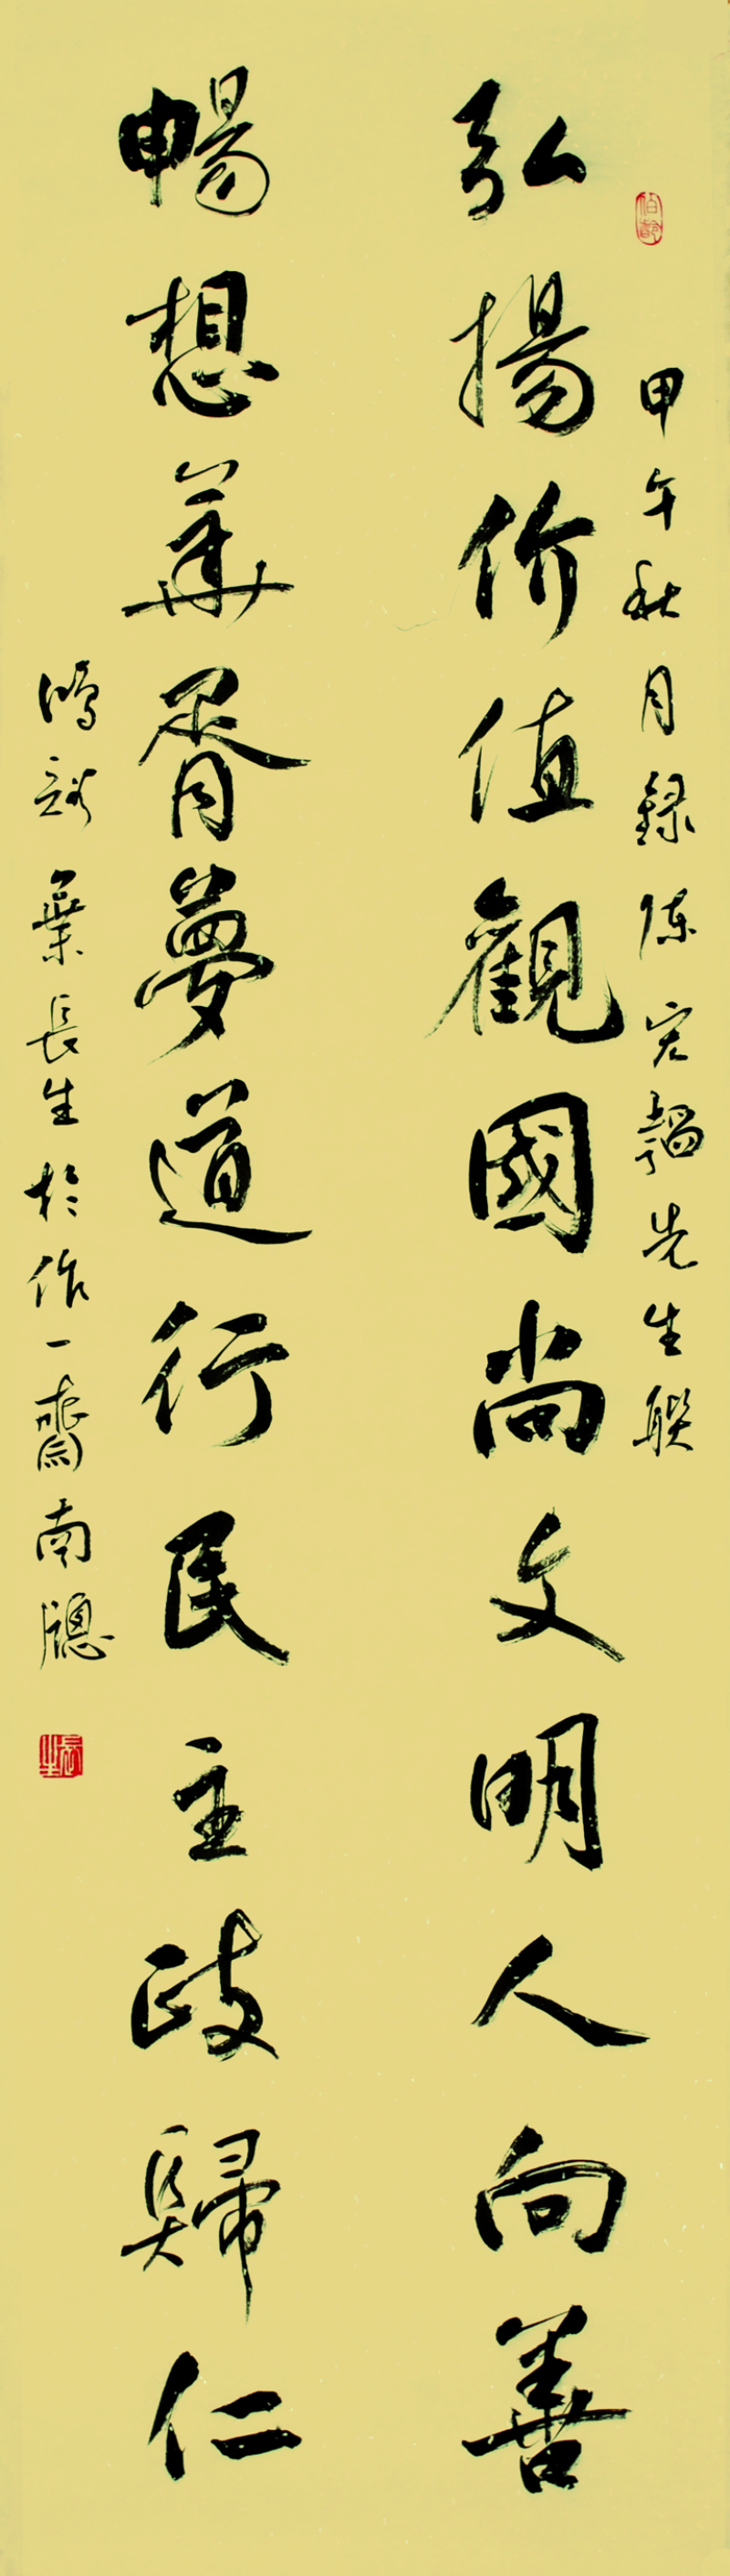 甲午秋月錄陈宏韜先生聯
弘揚价值觀國尚文明人向善
暢想華胥夢道行民主政歸仁
鴻谿葉長生於作一齋南牕